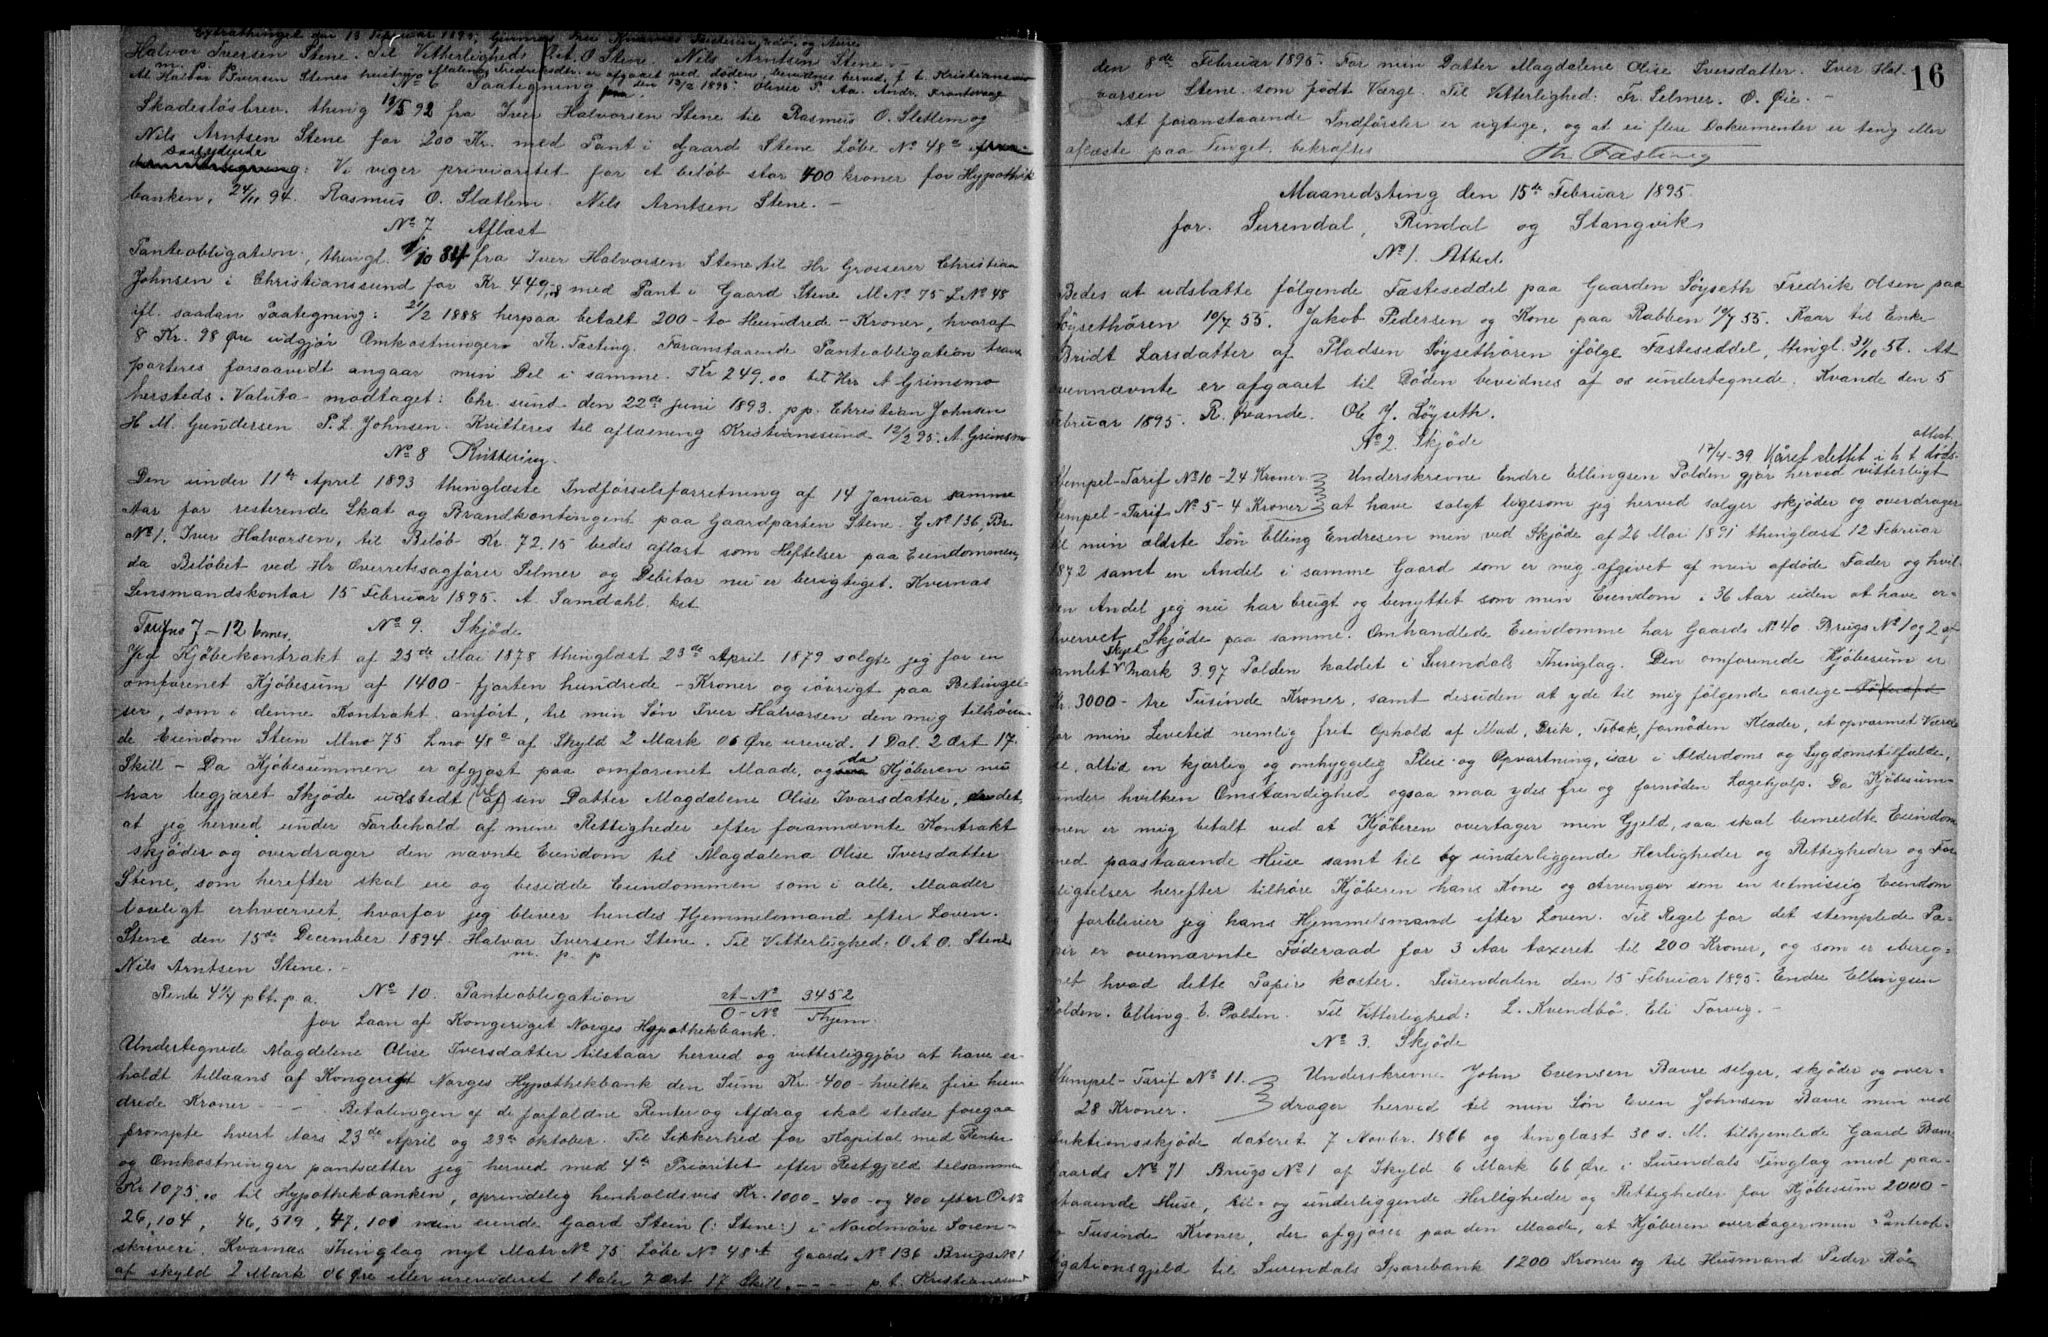 Extrathinget den 13 Februar 1895, Kvernes Thinglag og Aure
Halvor Iversen Stene. Til Vitterlighed: O. O. Stene. Nils Arntsen Stene.
m.
At Halvor Iversen Stenes hustru er afgaaet ved döden, bevidnes herved, p. t. Kristianssund
den 12/2 1895. Oliver P. Aa. Andr. Frostvaag
No 6 Paategning paa
Skadeslösbrev. thingl 92 fra Iver Halvorsen Stene til Rasmus O. Sletlem og
Nils Arntsen Stene for 200 Kr. med Pant i Gaard Stene Löbe No 48a
saalydende
: Vi viger prioritet for et belöb stor 400 kroner for Hypothek
banken, 24/11 94. Rasmus O. Slætlem. Nils Arntsen Stene. -
No 7 Aflæst
Panteobligation, thingl. 1/10 84 fra Iver Halvorsen Stene til Hr Grosserer Christian
Johnsen i Christianssund for Kr 449, med Pant i Gaard Stene M No 75 L No 48
ifl. saadan Paategning: 21/2 1888 herpaa betalt 200 - to Hundrede - Kroner, hvoraf
8 Kr. 98 Öre udgjör Omkostninger. Th. Fasting. Foranstaaende Panteobligation trans
porteres forsaavidt angaar min Del i samme. Kr 249.00 til Hrr A Grimsmo
hersteds. Valuta modtaget: Chr. sund den 22de juni 1893. p.p. Christian Johnsen
H. M. Gundersen P. L. Johnsen. Kvitteres til aflæsning Kristianssund 12/2 95. A. Grimsmo
No 8 Kvittering.
Den under 11te April 1893 thinglæste Indförselsforretning af 14 Januar samme
Aar for resterende Skat og Brandkontingent paa Gaardparten Stene. G No 136, Br.
No 1, Iver Halvorsen, til Belöb Kr. 72.15 bedes aflæst som Heftelser paa Eiendommen,
da Belöbet ved Hr Overretssagförer Selmer og Debitor nu er berigtiget. Kvernæs
Lensmandskontor 15 Februar 1895. A. Samdahl. kst
Tarif No 7 - 12 Kroner. No 9. Skjöde
Ved Kjöbekontrakt af 23de Mai 1878 thinglæst 23de April 1879 solgte jeg for en
omforenet Kjöbesum af 1400 - fjorten hundrede - Kroner og iövrigt paa Betingel-
ser, som i denne Kontrakt anfört, til min Sön Iver Halvorsen den mig tilhören-
de Eiendom Stein Mno 75 Lno 48a af Skyld 2 Mark 06 Öre urevid. 1 Dal. 2 Ort 17.
Skill - Da Kjöbesummen er afgjort paa omforenet Maade, og da Kjöberen nu
har begjæret Skjöde udstedt til sin Datter Magdalene Olise Ivarsdatter, det
at jeg herved under Forbehold af mine Rettigheder efter forannævnte Kontrakt
skjöder og overdrager den nævnte Eiendom til Magdalena Olise Iversdatter
Stene, som herefter skal eie og besidde Eiendommen som i alle Maader
lovligt erhværvet, hvorfor jeg bliver hendes Hjemmelsmand efter Loven.
Stene den 15de December 1894. Halvor Iversen Stene. Til Vitterlighed: O. A. O. Stene
m. p. p
Nils Arntsen Stene. -
Rente 4 1/4 pct. p. a. No 10. Panteobligation A - No 3452
O - No Thjem.
for Laan af Kongeriget Norges Hypothekbank.
Undertegnede Magdelene Olise Iversdatter tilstaar herved og vitterliggjör at have er-
holdt tillaans af Kongeriget Norges Hypothekbank den Sum Kr. 400 - hvilke fire hun
drede Kroner - - - Betalingen af de forfaldne Renter og Afdrag skal stedse foregaa
prompte hvert Aars 23de April og 23de Oktober. Til Sikkerhed for Kapital med Renter
og Omkostninger pantsætter jeg herved med 4de Prioritet efter Restgjeld tilsammen
Kr 1075.00 til Hypothekbanken, oprindelig henholdsvis Kr. 1000 - 400 - og 400 efter O No
26,104, 46,519, 47,100 min eiende Gaard Stein (: Stene:) i Nordmöre Soren-
skriveri. Kværnæs Thinglag nyt Matr No 75 Löbe No 48a Gaards No 136 Brugs No 1
af skyld 2 Mark 06 Öre eller urevideret 1 Daler 2 Ort 17 Skill. - - - - p. t. Kristianssund
16
den 8de Februar 1895. For min Datter Magdalene Olise Iversdatter. Iver Hal-
vorsen Stene som födt Værge. Til Vitterlighed: Fr. Selmer. O. Öie. -
At foranstaaende Indförsler er rigtige, og at ei flere Dokumenter er ting eller
aflæste paa Tinget, bekræftes Th. Fasting
Maanedsting den 15de Februar 1895
for Surendal, Rindal og Stangvik
No 1. Attest.
Bedes at udslætte fölgende Fæsteseddel paa Gaarden Söyseth Fredrik Olsen paa
Söysethören 10/7 55. Jakob Pedersen og Kone paa Rabben 10/7 55. Kaar til Enke
Bridt Larsdatter af Pladsen Söysethören ifölge Fæsteseddel, thingl. 30/10 56. At
ovennævnte er afgaaet til Döden bevidnes af os undertegnede. Kvande den 5
Februar 1895. R. Qvande. Ole J. Söyseth.
No 2. Skjöde
17/4 - 39 Kåret slettet i h. t. döds-
attest.
Stempel-Tarif No 10 - 24 Kroner. Underskrevne Endre Ellingsen Polden gjör herved vitterligt
Stempel-Tarif No 5 - 4 Kroner at have solgt ligesom jeg herved sælger skjöder og overdrager
til min ældste Sön Elling Endresen men ved Skjöde af 26 Mai 1871 thinglæst 12 Februar
1872 samt en Andel i samme Gaard som er mig afgivet af min afdöde Fader og hvil-
ken Andel jeg nu har brugt og benyttet som min Eiendom i 36 Aar uden at have er-
hvervet Skjöde paa samme. Omhandlede Eiendomme har Gaards No 40 Brugs No 1 og 2 af
samlet Skyld Mark 3.97 Polden kaldet i Surendals Thinglag. Den omforenede Kjöbesum er
Kr. 3000 - tre Tusinde Kroner, samt desuden at yde til mig fölgende aarlige Föderaad
for min Levetid nemlig frit Ophold af Mad, Drik, Tobak, fornöden Klæder, et opvarmet Værel
se, altid en kjærlig og omhyggelig Pleie og Opvartning, især i Alderdoms og Sygdomstilfælde,
under hvilken Omstændighed ogsaa maa ydes fri og fornöden Lægehjælp. Da Kjöbesum-
men er mig betalt ved at Kjöberen overtager min Gjeld, saa skal bemeldte Eiendom
med paastaaende Huse samt til og underliggende Herligheder og Rettigheder og For
pligtelser herefter tilhöre Kjöberen hans Kone og Arvinger som en retmæssig Eiendom
og forbliver jeg hans Hjemmelsmand efter Loven. Til Regel for det stemplede Pa-
pir er ovennævnte Föderaad for 3 Aar taxeret til 200 Kroner, og som er ibereg-
net hvad dette Papir koster. Surendalen den 15 Februar 1895. Endre Ellingsen
Polden. Elling E. Polden. Til Vitterlighed: L. Kvendbö. Eli Torvig. -
No 3. Skjöde
Stempel-Tarif No 11. Underskrevne John Evensen Bævre sælger, skjöder og over-
28 Kroner. drager herved til min Sön Even Johnsen Bævre min ved
Auktionsskjöde dateret 7 Novbr. 1866 og tinglæst 30 s. M. tilhjemlede Gaard Bævre
Gaards No 71 Brugs No 1 af Skyld 6 Mark 66 Öre i Surendals Tinglag med paa-
staaende Huse, til- og underliggende Herligheder og Rettigheder for Kjöbesum 2000 -
to Tusinde Kroner, der afgjöres paa den Maade, at Kjöberen overtager min Panteob-
ligationsgjeld til Surendals Sparebank 1200 Kroner og til Husmand Peder Röe